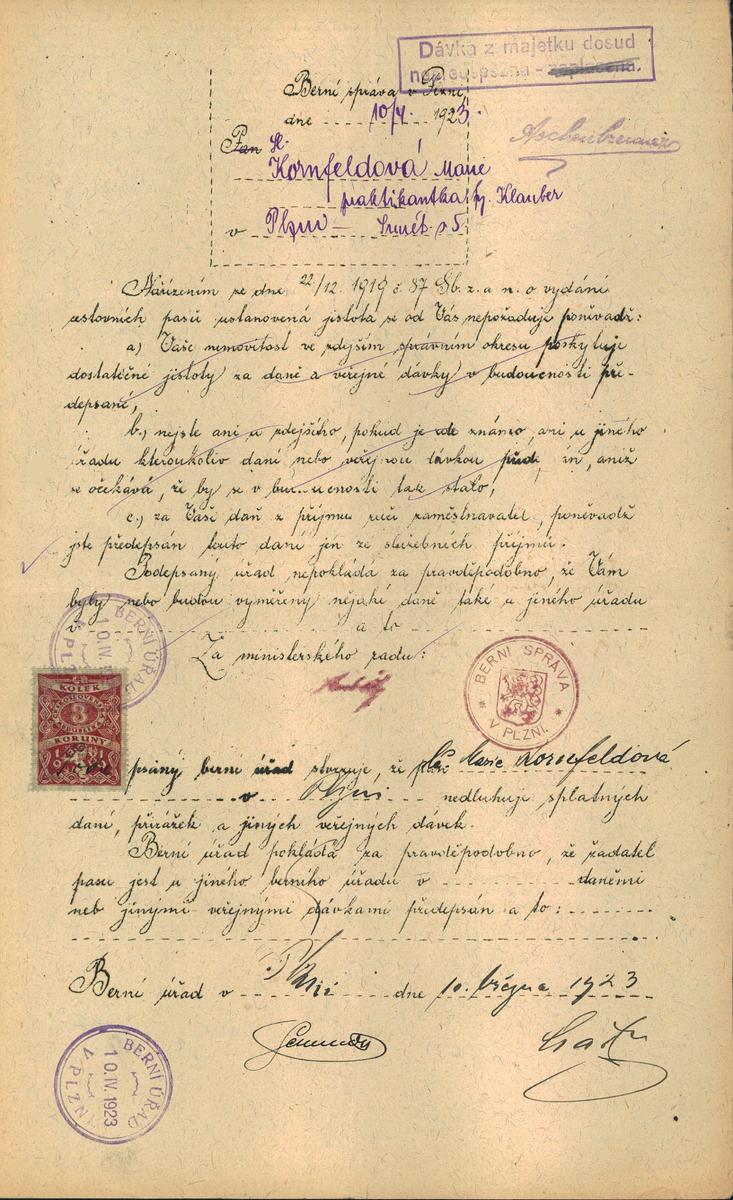 Dávka z majetku dosud
nepředepsána - zaplacena.
Berní správa v Plzni
dne 10/4 1923.
Pan Sl.
Kornfeldová Marie
praktikantka fy. Klauber
v Plzni —
Nařízením ze dne 22/12. 1919 č. 87 Sb. z. a n. o vydání
cestovních pasů ustanovená jistota se od Vás nepožaduje poněvadž:
a) Vaše nemovitost ve zdejším správním okresu poskytuje
dostatečné jistoty za daně a veřejné dávky v budoucnosti pře-
depsané,
b.) nejste ani u zdejšího, pokud je zde známo, ani u jiného
úřadu kteroukoliv daní nebo veřejnou dávkou před, án, aniž
se očekává, že by se v budoucnosti tak stalo,
c.) za Vaši daň z příjmu ručí zaměstnavatel, poněvadž
jste předepsán touto daní jen ze služebních příjmů.
Podepsaný úřad nepokládá za pravděpodobno, že Vám
byly nebo budou vyměřeny nějaké daně také u jiného úřadu
v a to
Za ministerského radu:
BERNÍ ÚŘAD
10.IV.
V PLZ
BERNÍ SPRÁVA
V PLZNI.
KOLEK
3
KORUNY
psaný berní úřad stvrzuje, že pan Sl. Marie Kornfeldová
v Plzni nedluhuje splatných
daní, přirážek a jiných veřejných dávek.
Berní úřad pokládá za pravděpodobno, že žadatel
pasu jest u jiného berního úřadu v daněmi
neb jinými veřejnými dávkami předepsán a to:
Berní úřad v Plzni dne 10. března 1923
BERNÍ ÚŘAD
10.IV.1923
V PLZNI